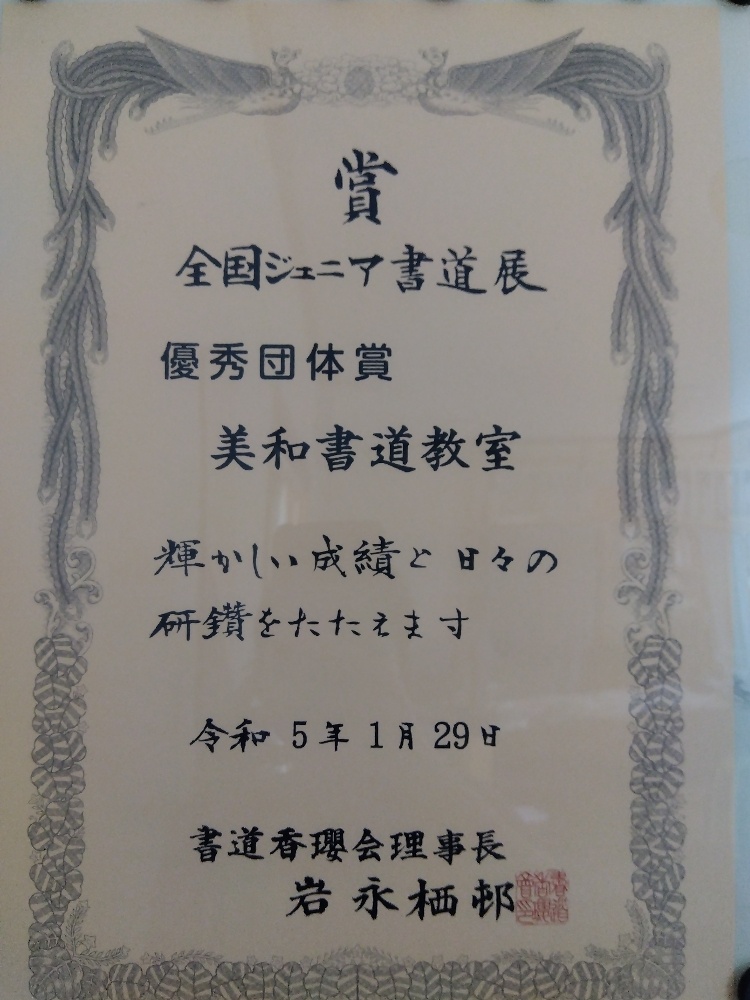 賞
全国ジュニア書道展
優秀団体賞
美和書道教室
輝かしい成績と日々の
研鑽をたたえます
令和5年1月29日
書道香瓔会理事長
岩永栖邨